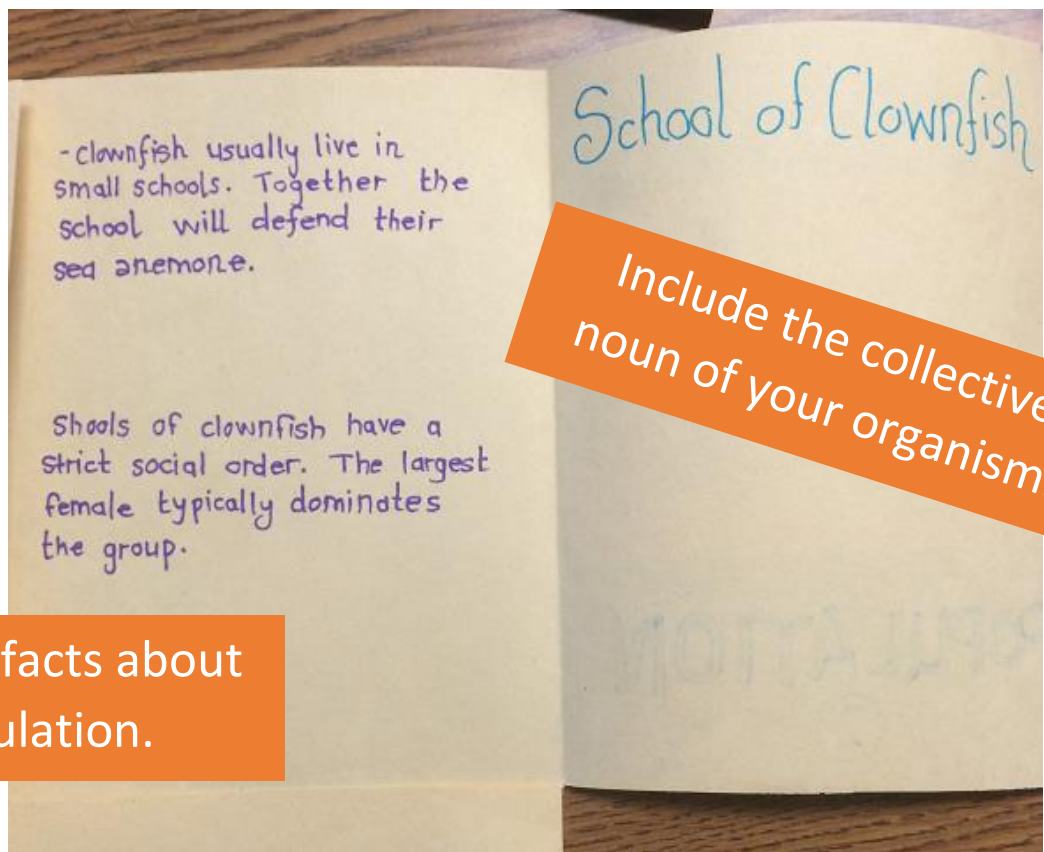 - clownfish usually live in
small schools. Together the
school will defend their
sea anemone.
Shools of clownfish have a
strict social order. The largest
female typically dominates
the group.
facts about
ulation.
School of Clownfish
Include the collective
noun of your organism
POPULATION